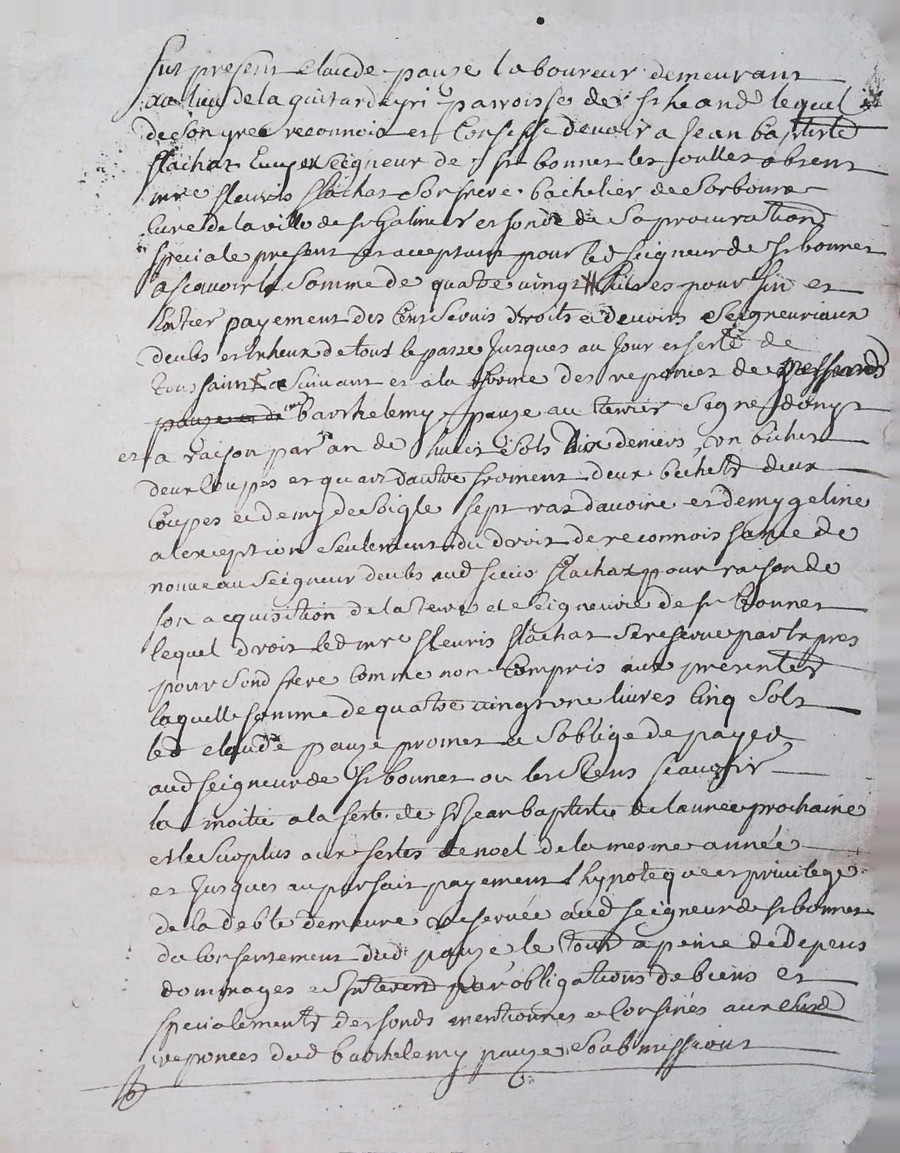 fut present Claude pauze laboureur demeurant
au lieu de la guitardeyri parroisse de st heand lequel
de son gre reconnoit et Confesse devoir a Jean baptiste
flachat Seigneur de st bonnet les oulles absent
mre fleuris flachat son frere bachelier de Sorbonne
Curé de la ville de st Galmier et fondé de Sa procuration
speciale present et acceptant pour led seigneur de st bonnet
ascavoir la Somme de quatre vingt livres pour fin et
Entier payement des Cens Servis droits et devoirs Seigneuriaux
deubs et Escheux de tout le passe Jusques au Jour et feste de
toussaint Suivant et a la forme des reponces de
barthelemy pauze au terrier Signé
et a raison par an de huict Sols dix deniers, un bichet
deux Coupes et quart dautre froment deux bichets deux
Coupes et demy de Seigle Sept raz davoine et demy geline
a lexception Seulement du droit de reconnoissance de
nouveau Seigneur deubs aud sieur flachat pour raison de
son acquisition de la terre et Seigneurie de st bonnet
lequel droit led mre fleuris flachat Se reserve par Expres
pour Sond frere Comme non Compris aux presentes
laquelle somme de quatre vingt une livres Cinq Sols
led Claude pauze promet et Soblige de payer
aud seigneur de st bonnet ou les Siens scavoir
la moitie a la feste de st Jean baptiste de lannée prochaine
et le Surplus aux festes de noel de la mesme année
et Jusques au parfait payement lhypoteque et privilege
de la debte demeure reservée aud seigneur de st bonnet
du Consentement dud pauze le tout a peine de Depens
dommages et Interest par obligations de biens et
specialement des fonds mentionnes et Confinés aux
reponces dud barthelemy pauze Soubmissions